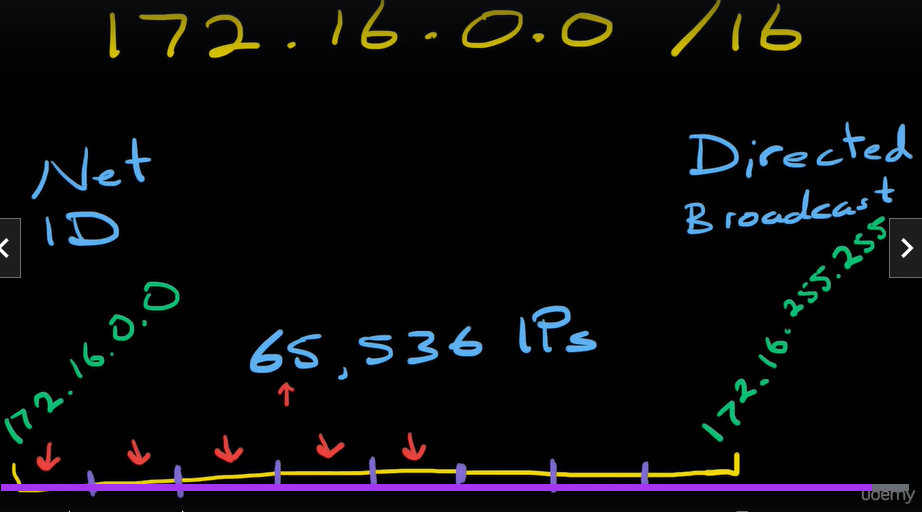 172.16.0.0 /16
Net
ID
Directed
Broadcast
172.16.0.0
65,536 IPs
172.16.255.255
udemy